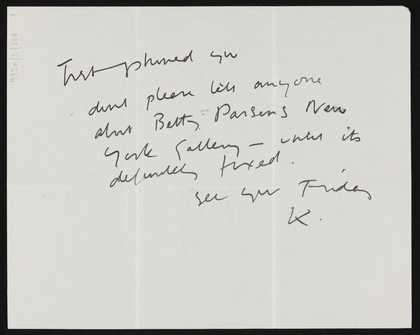 Just phoned you
dont please tell anyone
about Betty Parsons New
York Gallery — until its
definitely fixed.
See you Friday
K.